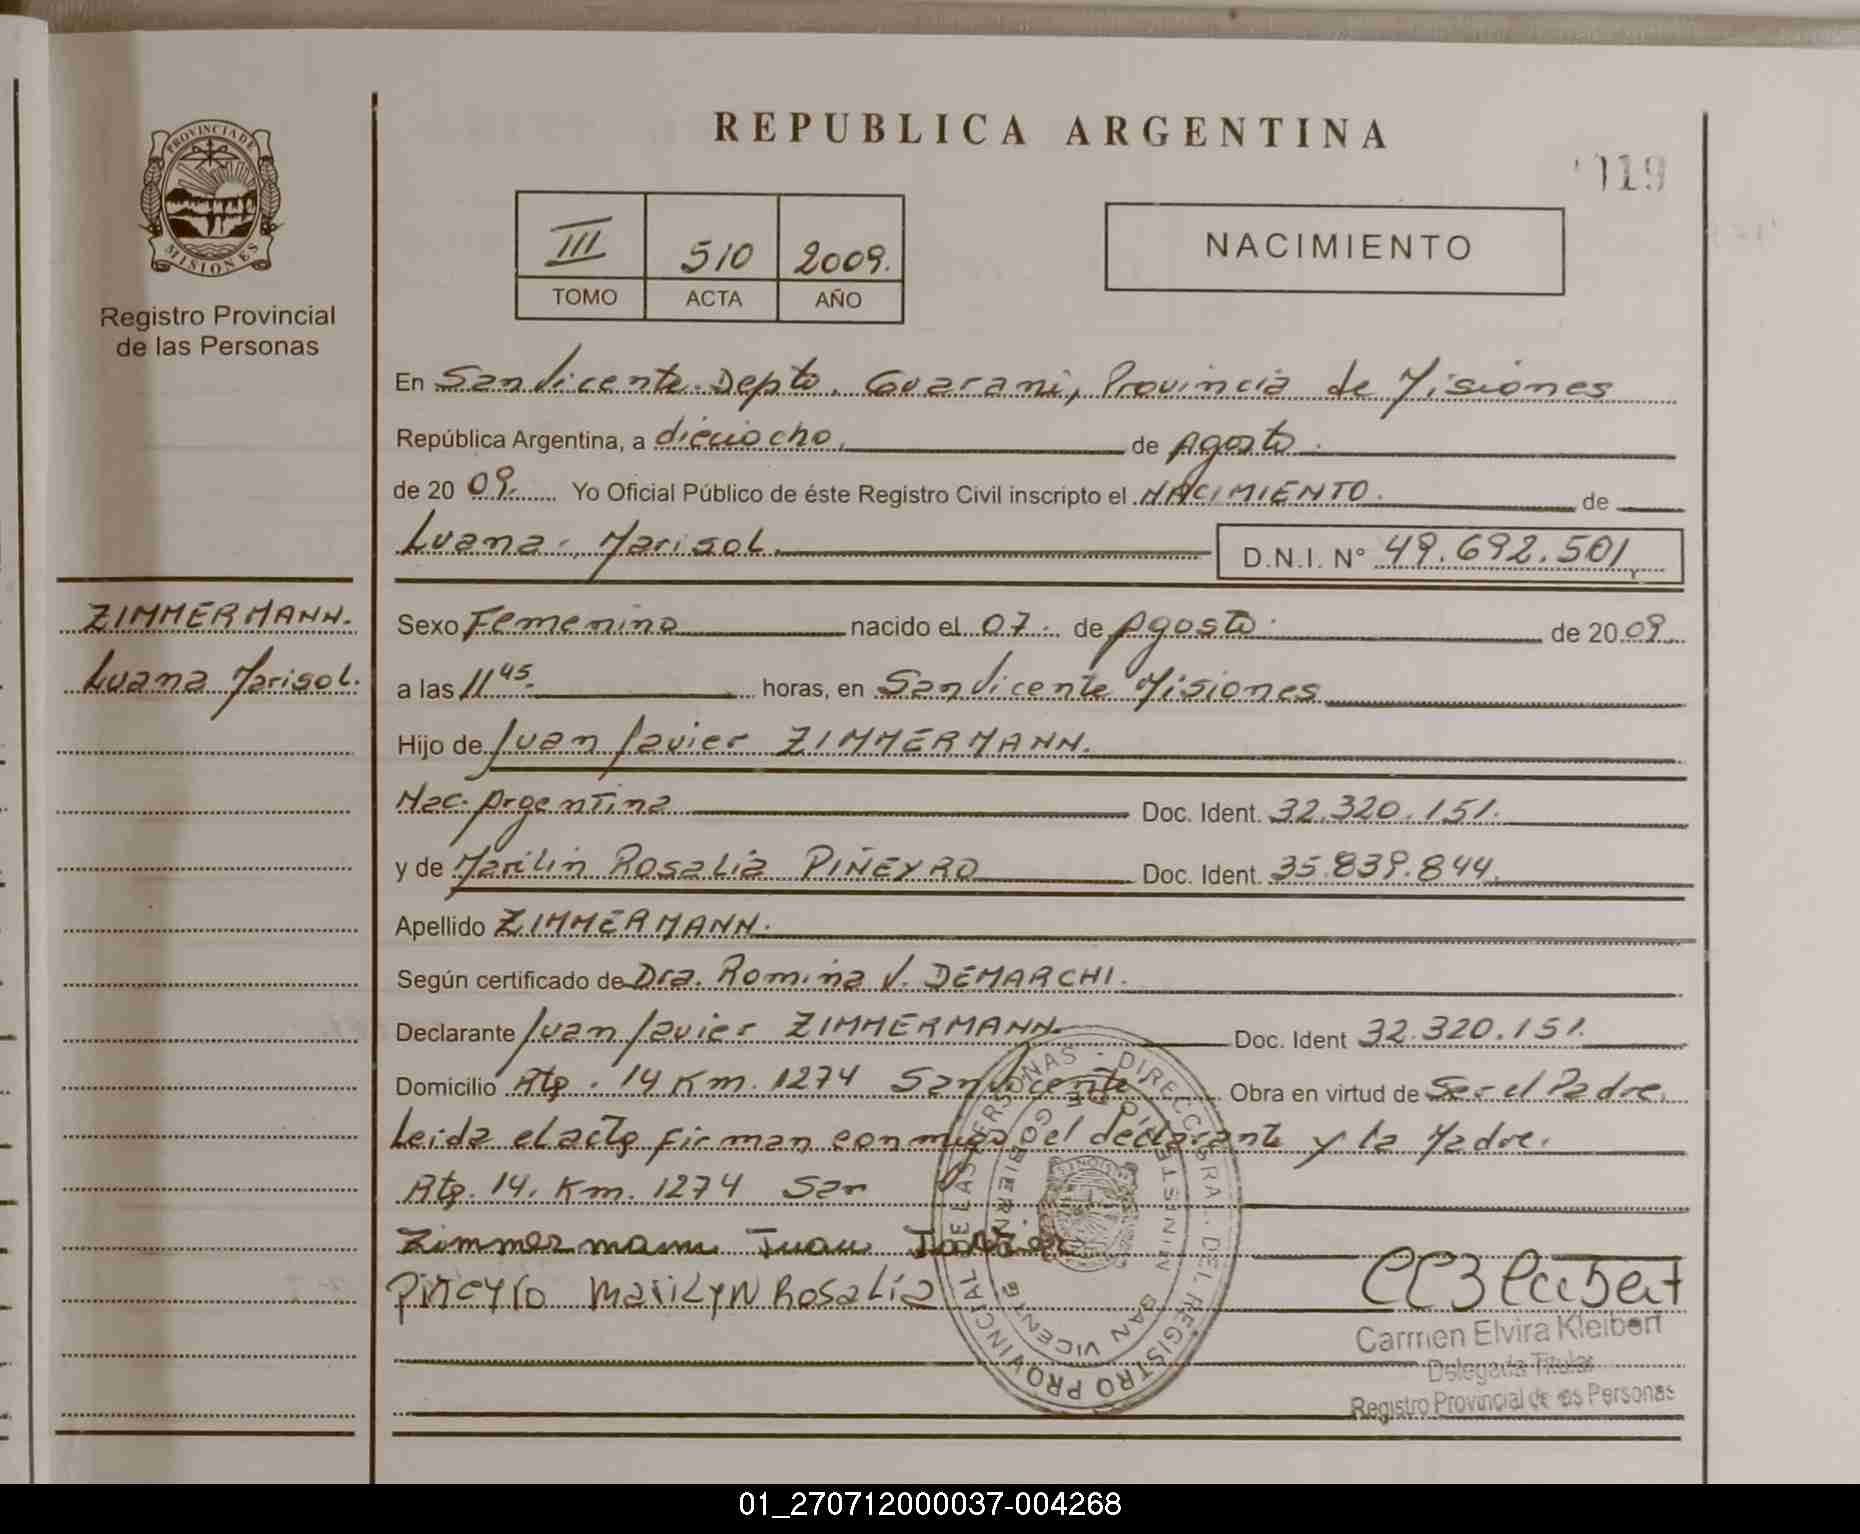 REPUBLICA ARGENTINA
119
PROVINCIA DE MISIONES
Registro Provincial
de las Personas
III 510 2009.
TOMO ACTA AÑO
NACIMIENTO
En San Vicente. Depto. Guarani, Provincia de Misiones
República Argentina, a dieciocho. de Agosto.
de 20 09. Yo Oficial Público de éste Registro Civil inscripto el NACIMIENTO. de
Luana Marisol D.N.I. Nº 49.692.501
ZIMMERMANN.
Luana Marisol.
Sexo Femenino nacido el 07. de Agosto. de 20 09
a las 11 45. horas, en San Vicente Misiones
Hijo de Juan Javier ZIMMERMANN.
Nac. Argentina Doc. Ident. 32.320.151.
y de Marilin Rosalia PIÑEYRO Doc. Ident. 35.839.844.
Apellido ZIMMERMANN.
Según certificado de Dra. Romina V. DEMARCHI.
Declarante Juan Javier ZIMMERMANN. Doc. Ident 32.320.151.
Domicilio Rta. 14 Km. 1274 San Vicente Obra en virtud de Ser el Padre.
Leida el acta firman conmigo el declarante y la Madre.
Rta. 14. Km. 1274 San
Zimmermann Juan Javier
Piñeyro Marilyn Rosalia
DIRECC. GRAL. DEL REGISTRO PROVINCIAL DE LAS PERSONAS
MINISTERIO DE GOBIERNO
SAN VICENTE
Carmen Elvira Kleibert
Delegada Titular
Registro Provincial de las Personas
01_270712000037-004268